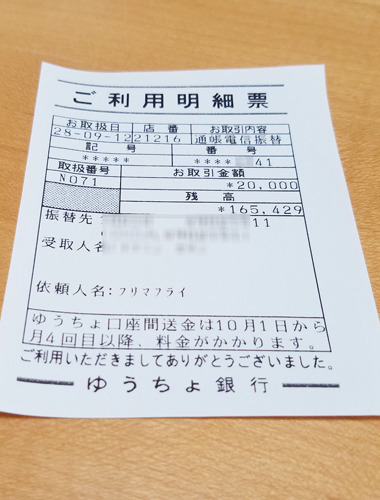 ご利用明細票
お取扱日 店番 お取引内容
28-09-1221216 通帳電信振替
記号 番号
***** **** 41
取扱番号 お取引金額
N071 *20,000
残高
*165,429
振替先 11
受取人名
依頼人名:フリマフライ
ゆうちょ口座間送金は10月1日から
月4回目以降、料金がかかります。
ご利用いただきましてありがとうございました。
ゆうちょ銀行